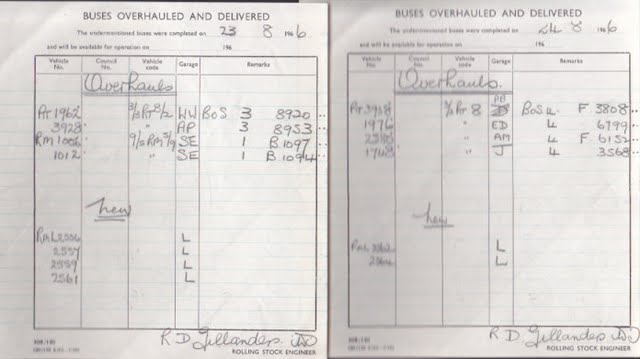 BUSES OVERHAULED AND DELIVERED
The undermentioned buses were completed on 23 8 1966
and will be available for operation on 196
Vehicle No. Council No. Vehicle code Garage Remarks
Overhauls
RT 1962 3/3 RT 8/2 WW BOS 3 8920
3928 " AP 3 8953
RM 1006 9/2 RM 5/9 SE 1 B 1097
1012 " SE 1 B 1094
New
RML 2556 L
2557 L
2559 L
2561 L
R D Gillanders
ROLLING STOCK ENGINEER
BUSES OVERHAULED AND DELIVERED
The undermentioned buses were completed on 24 8 1966
and will be available for operation on 196
Vehicle No. Council No. Vehicle code Garage Remarks
Overhauls
RT 3958 RT 8 PB BOS 4 F 3808
1976 " ED 4 6799
" AM 4 F 6152
1748 " J 4 3568
New
RML L
L
R D Gillanders
ROLLING STOCK ENGINEER